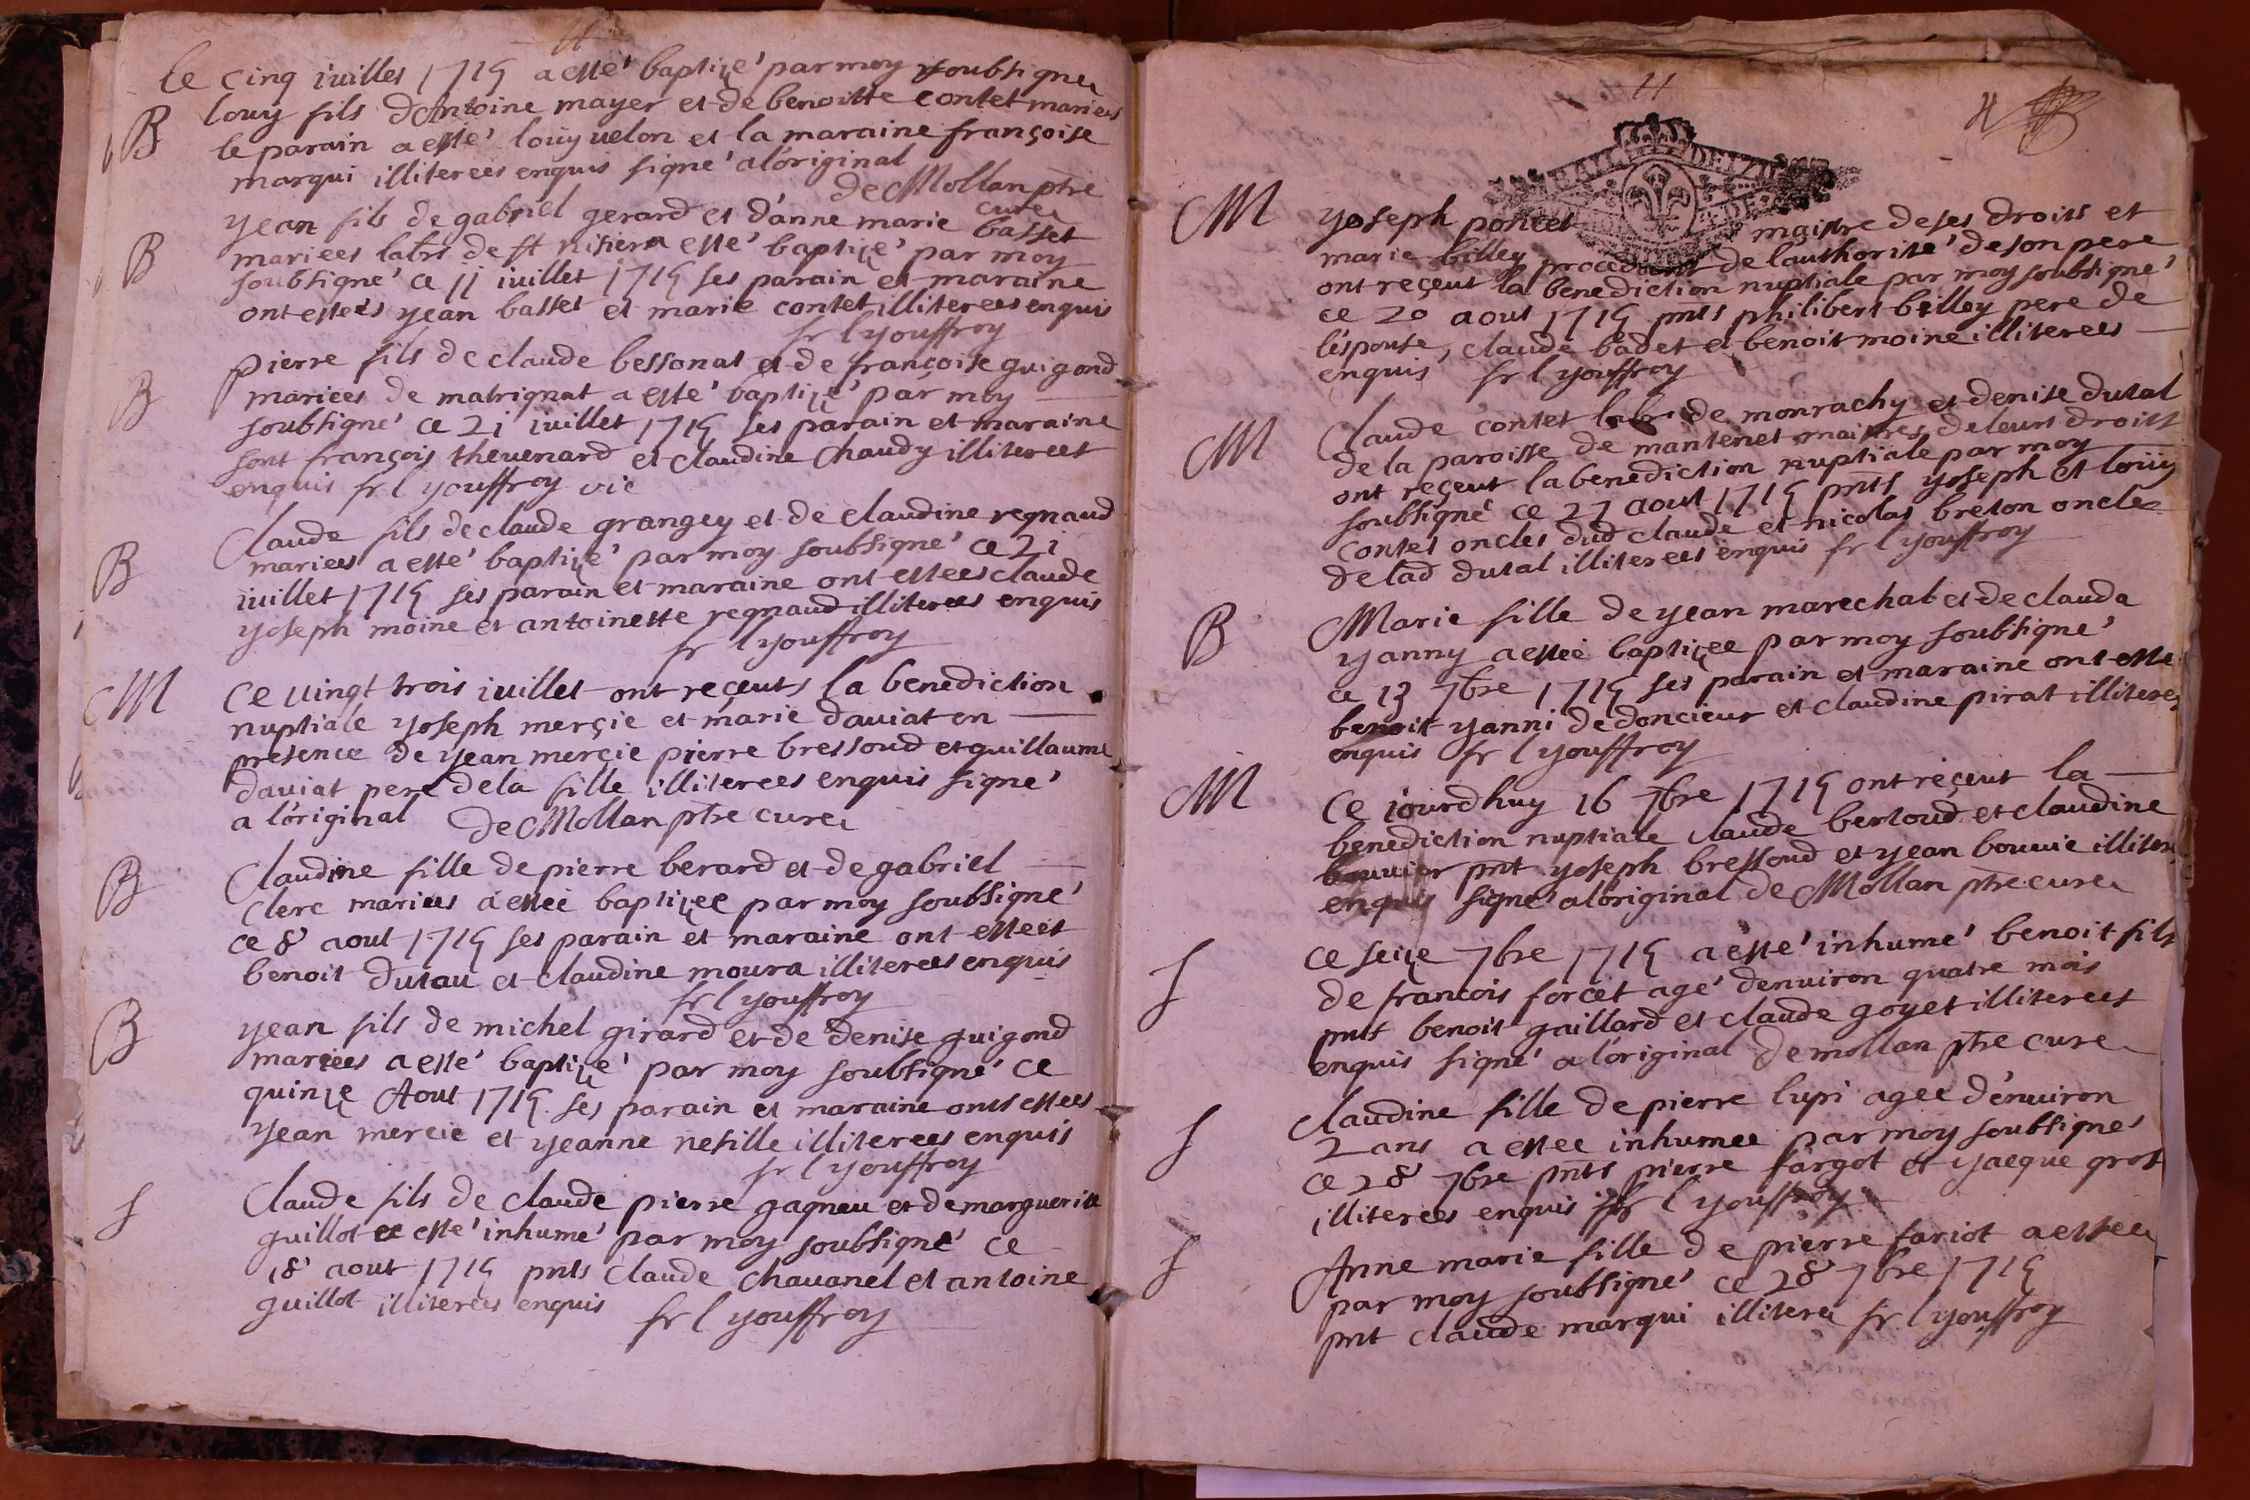 le cinq juilles 1715 a esté baptizé par moy soubsigné
B louy fils d'Antoine mayer et de benoitte contet mariees
le parain a esté loüy uelon et la maraine françoise
marqui illiterees enquis signé a l'original
de Mollan ptre
curé
B yean fils de gabriel gerard et d'anne marie basset
mariees labrs de st nisier a esté baptizé par moy
soubsigné ce 11 juillet 1715 ses parain et maraine
ont estees yean basset et marie contet illiterees enquis
fr l youffroy
B pierre fils de claude bessonat et de françoise guigond
mariees de matrignat a esté baptizé par moy
soubsigné ce 21 juillet 1715 ses parain et maraine
sont françois theuenard et claudine chaudy illiterees
enquis fr l youffroy vic
B Claude fils de claude grangey et de claudine regnaud
mariees a esté baptizé par moy soubsigné ce 21
juillet 1715 ses parain et maraine ont estees claude
yoseph moine et antoinette regnaud illiterees enquis
fr l youffroy
M Ce uingt trois juillet ont reçeuts la benediction
nuptiale yoseph merçie et marie dauiat en
presence de yean merçie pierre bressoud et guillaume
dauiat pere de la fille illiterees enquis signé
a l'original de Mollan ptre curé
B Claudine fille de pierre berard et de gabriel
clerc mariees a esteé baptizee par moy soubsigné
ce 8 aout 1715 ses parain et maraine ont estees
benoit dutau et claudine moura illiterees enquis
fr l youffroy
B yean fils de michel girard et de denise guigond
mariees a esté baptizé par moy soubsigné ce
quinze Aout 1715 ses parain et maraine onts estees
yean mercie et yeanne nesille illiterees enquis
fr l youffroy
S Claude fils de claude pierre gagneu et de marguerite
guillot a esté inhumé par moy soubsigné ce
18 aout 1715 pnts claude chauanel et antoine
guillot illiterees enquis fr l youffroy
11
M yoseph poncet maistre de ses droits et
marie billey procedant de l'authorité de son pere
ont reçeut la benediction nuptiale par moy soubsigné
ce 20 aout 1715 pnts philibert billey pere de
l'espouse, claude badet et benoit moine illiterees
enquis fr l youffroy
M Claude contet labr de monrachy et denise dutal
de la paroisse de mantenet maistres de leurs droits
ont reçeut la benediction nuptiale par moy
soubsigné ce 27 aout 1715 pnts yoseph et loüy
contet oncles dud claude et nicolas breton oncle
de lad dutal illiterees enquis fr l youffroy
B Marie fille de yean marechal et de clauda
yanny a esteé baptizee par moy soubsigné
ce 13 7bre 1715 ses parain et maraine ont esté
benoit yanni de doncieur et claudine pirat illiterees
enquis fr l youffroy
M Ce jourdhuy 16 7bre 1715 ont reçeut la
benediction nuptiale claude bertoud et claudine
bouuier pnt yoseph bressoud et yean bouuie illiterees
enquis signé a l'original de Mollan ptre curé
S ce seize 7bre 1715 a esté inhumé benoit fils
de francois forcet agé denuiron quatre mois
pnts benoit gaillard et claude goyet illiterees
enquis signé a l'original de mollan ptre curé
S Claudine fille de pierre lupi agee d'enuiron
2 ans a estee inhumee par moy soubsigné
ce 28 7bre pnts pierre fargot et yacque gros
illiterees enquis fr l youffroy
S Anne marie fille de pierre fariot a estee
par moy soubsigné ce 28 7bre 1715
pnt claude marqui illiteré fr l youffroy